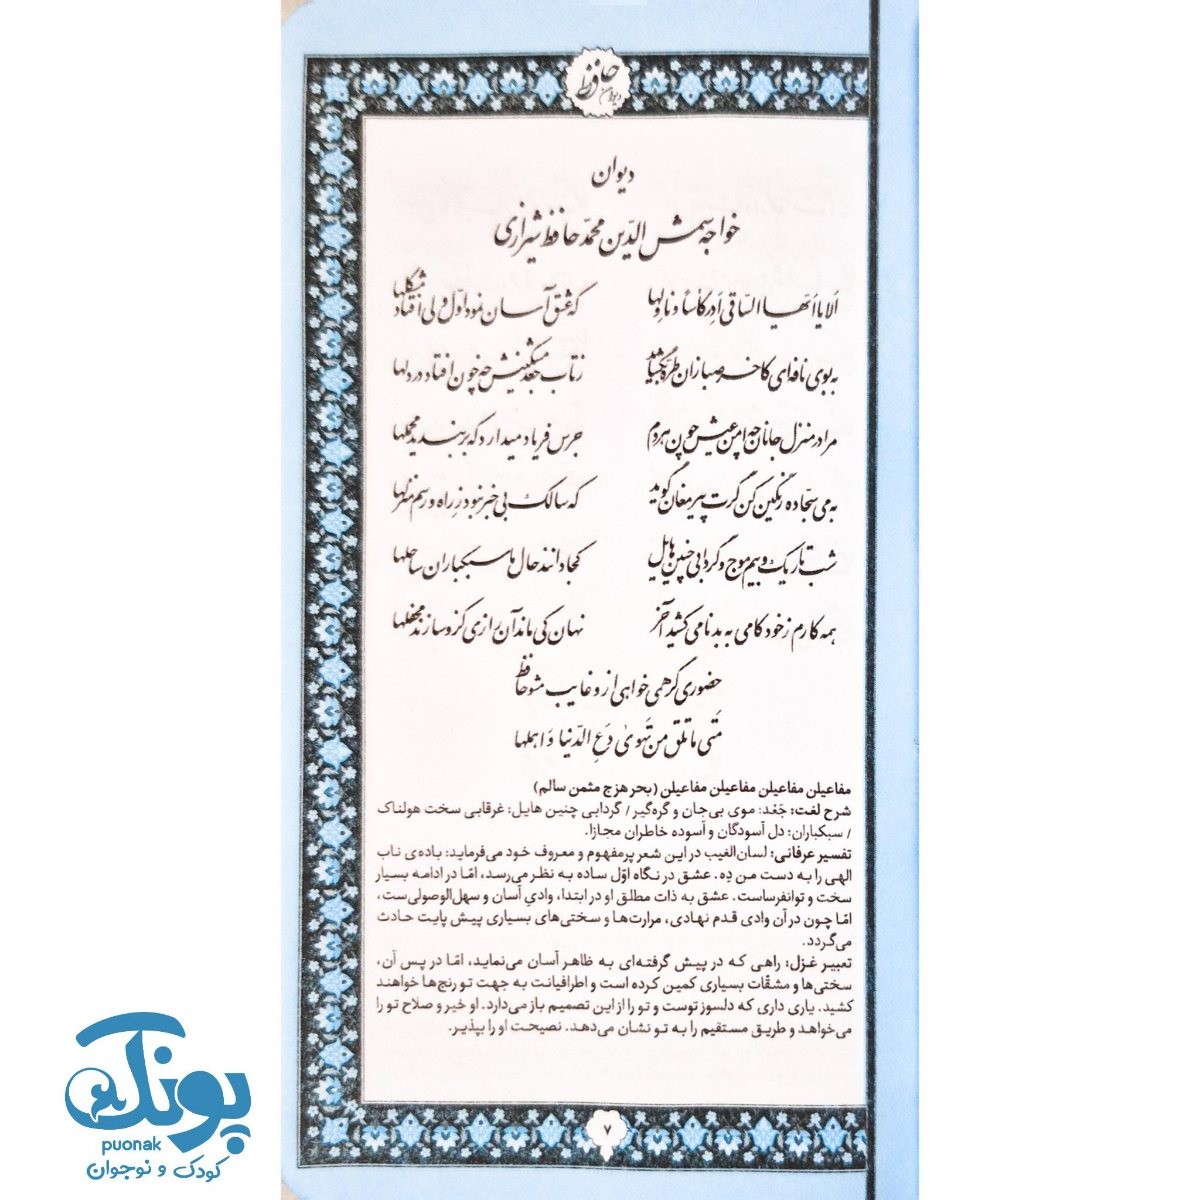 دیوان حافظ
دیوان
خواجه شمس الدّین محمّد حافظ شیرازی
اَلا یا اَیّها السّاقی اَدِر کَاْساً وَ ناوِلها که عشق آسان نمود اوّل ولی افتاد مشکلها
به بوی نافه‌ای کاخر صبا زان طرّه بگشاید ز تاب جعد مشکینش چه خون افتاد در دلها
مرا در منزل جانان چه امن عیش چون هر دم جرس فریاد میدارد که بربندید محملها
به می سجّاده رنگین کن گرت پیر مغان گوید که سالک بی‌خبر نبود ز راه و رسم منزلها
شب تاریک و بیم موج و گردابی چنین هایل کجا دانند حال ما سبکباران ساحلها
همه کارم ز خود کامی به بدنامی کشید آخر نهان کی ماند آن رازی کزو سازند محفلها
حضوری گر همی خواهی ازو غایب مشو حافظ
مَتی ما تَلقَ مَن تَهوی دَعِ الدّنیا وَ اَهملها
مفاعیلن مفاعیلن مفاعیلن مفاعیلن (بحر هزج مثمن سالم)
شرح لغت: جَعْد: موی بی‌جان و گره‌گیر/ گردابی چنین هایل: غرقابی سخت هولناک
/ سبکباران: دل آسودگان و آسوده خاطران مجازا.
تفسیر عرفانی: لسان‌الغیب در این شعر پرمفهوم و معروف خود می‌فرماید: باده‌ی ناب
الهی را به دست من دِه. عشق در نگاه اوّل ساده به نظر می‌رسد، امّا در ادامه بسیار
سخت و توانفرساست. عشق به ذات مطلق او در ابتدا، وادی آسان و سهل‌الوصولی‌ست،
امّا چون در آن وادی قدم نهادی، مرارت‌ها و سختی‌های بسیاری پیش پایت حادث
می‌گردد.
تعبیر غزل: راهی که در پیش گرفته‌ای به ظاهر آسان می‌نماید، امّا در پس آن،
سختی‌ها و مشقّات بسیاری کمین کرده است و اطرافیانت به جهت تو رنج‌ها خواهند
کشید. یاری داری که دلسوز توست و تو را از این تصمیم باز می‌دارد. او خیر و صلاح تو را
می‌خواهد و طریق مستقیم را به تو نشان می‌دهد. نصیحت او را بپذیر.
۷
پونک
puonak
کودک و نوجوان